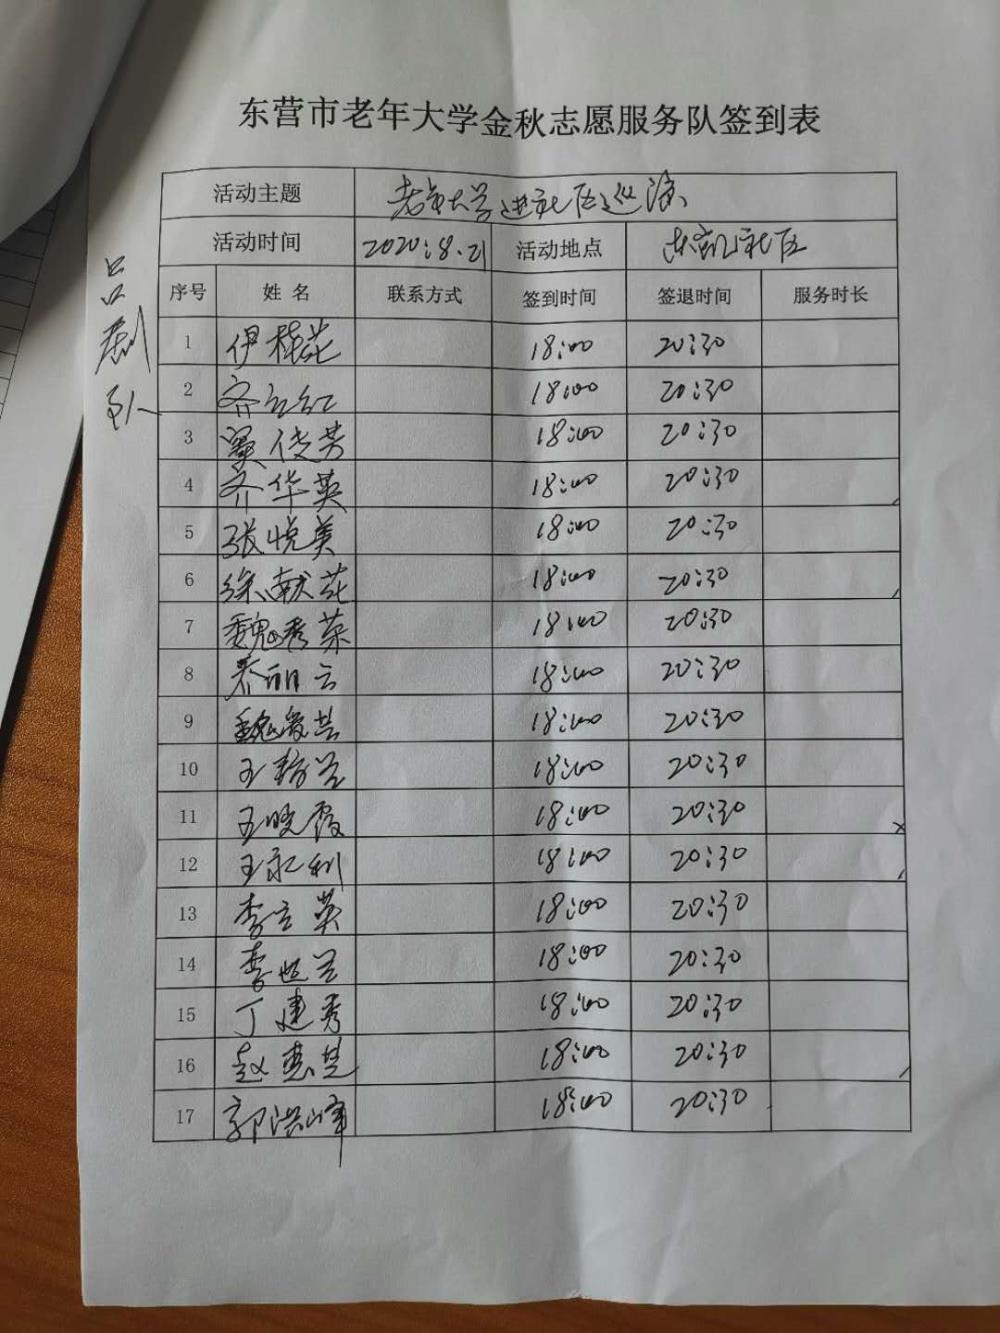 东营市老年大学金秋志愿服务队签到表
活动主题 老年大学进社区巡演
活动时间 2020.8.21 活动地点 东凯社区
吕剧队
序号 姓名 联系方式 签到时间 签退时间 服务时长
1 伊桂花 18:00 20:30
2 齐立红 18:00 20:30
3 窦俊芳 18:00 20:30
4 齐华英 18:00 20:30
5 张悦美 18:00 20:30
6 徐献花 18:00 20:30
7 魏秀荣 18:00 20:30
8 乔丽云 18:00 20:30
9 魏 18:00 20:30
10 王 兰 18:00 20:30
11 王晓霞 18:00 20:30
12 王永利 18:00 20:30
13 李立英 18:00 20:30
14 李世兰 18:00 20:30
15 丁建秀 18:00 20:30
16 赵惠芝 18:00 20:30
17 郭洪峰 18:00 20:30